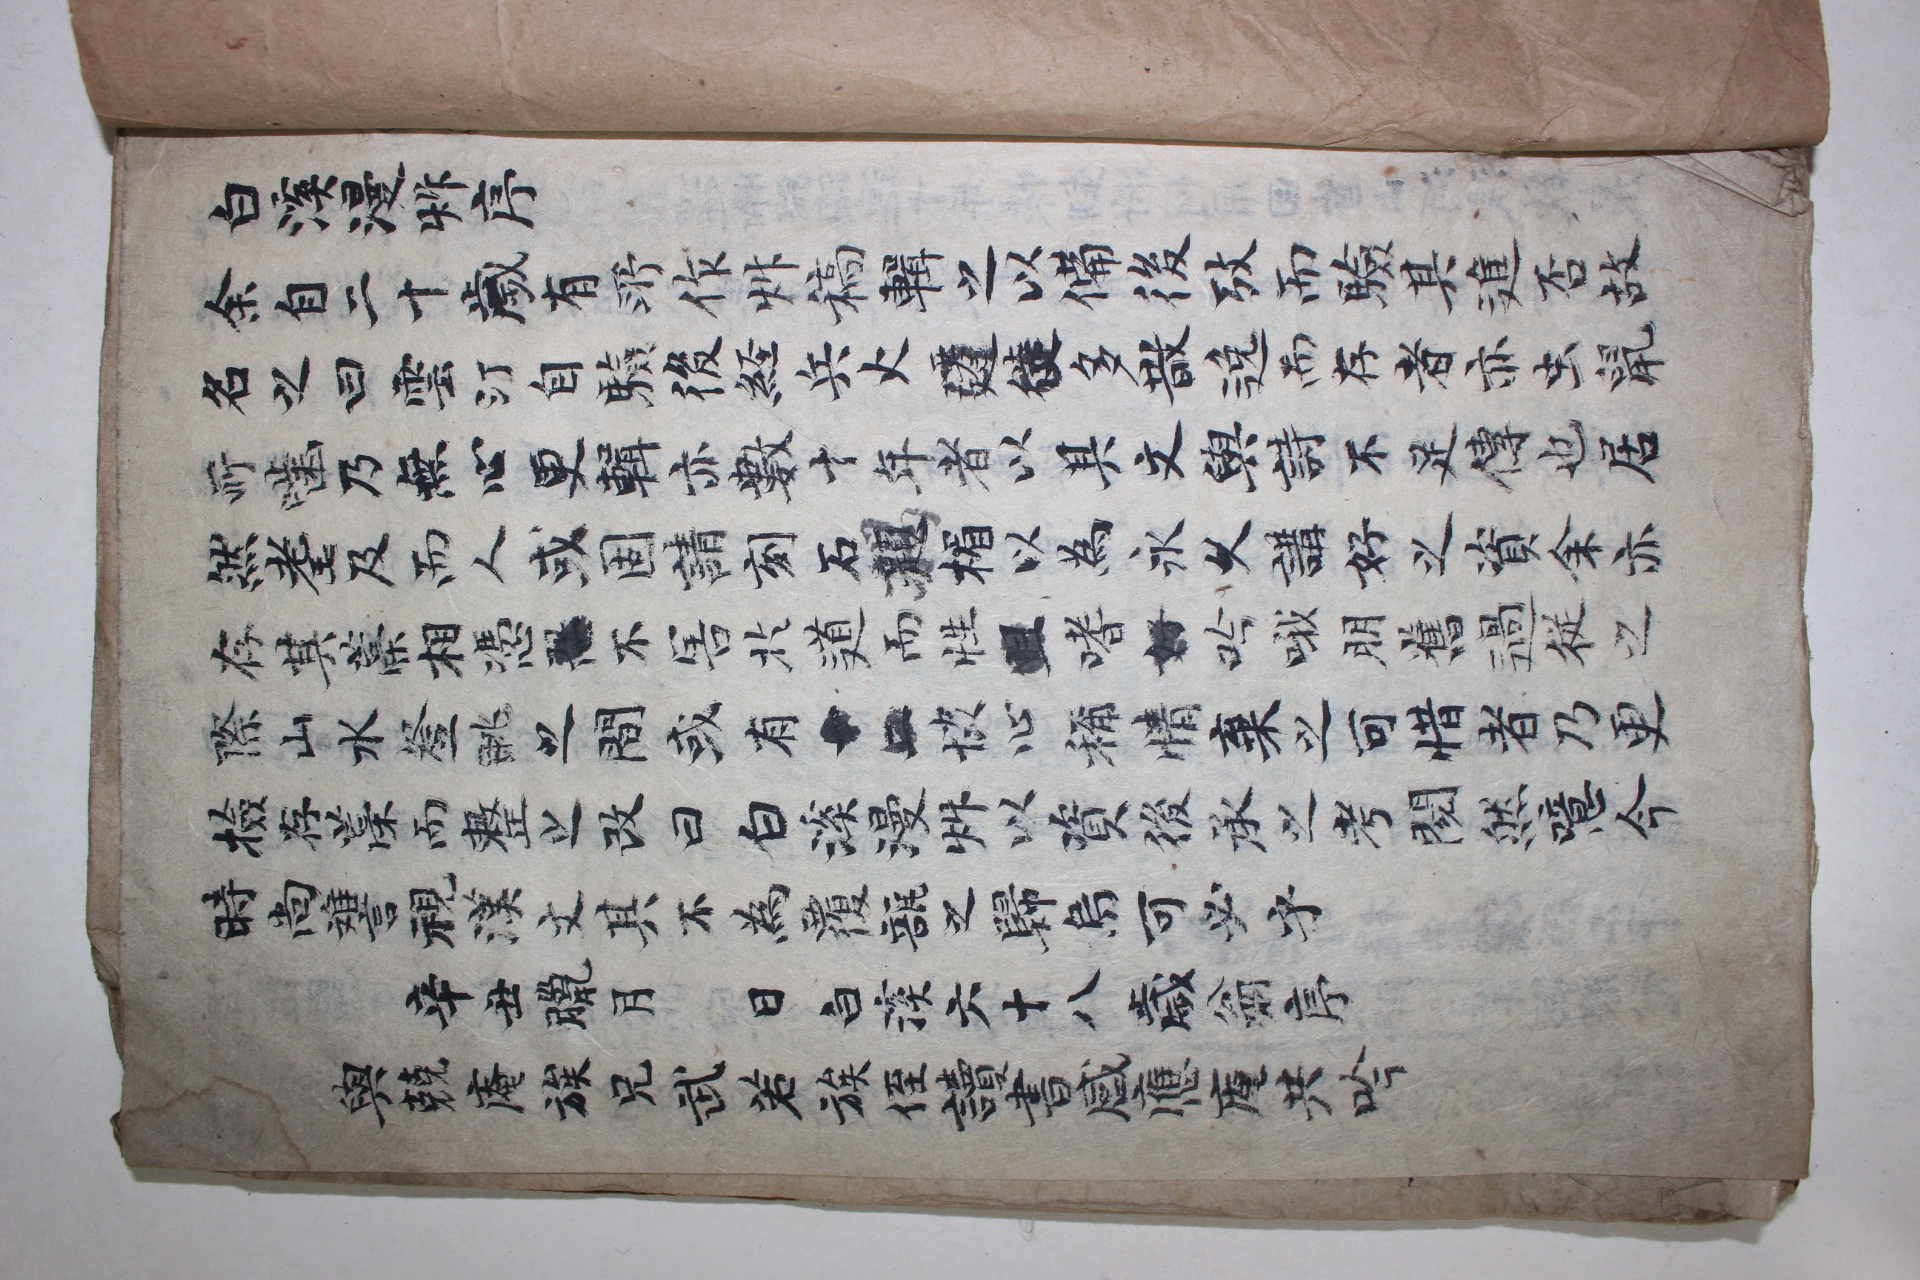 白溪漫艸序
余自二十歲有所作艸稿輯之以備後攷而驗其進否故
名之曰雲汀自驗後經兵火遷徙多散逸而存者亦虫鼠
所噛乃無心更輯亦數十年者以其文與詩不足傳也居
然耋及而人或固請刻石楣以為永久講好之資余亦
存其藁相憑不害於道而性且嗜好吟哦朋舊過從之
際山水登眺之間或有十口愜心稱情棄之可惜者乃更
檢存藁而整之改曰白溪漫艸以資後承之考閱然噫今
時尚讐視漢文其不為覆瓿之歸烏可必乎
辛丑臘月 日 白溪六十八歲翁序
與兢庵族兄武若族侄讀書感應庵共吟